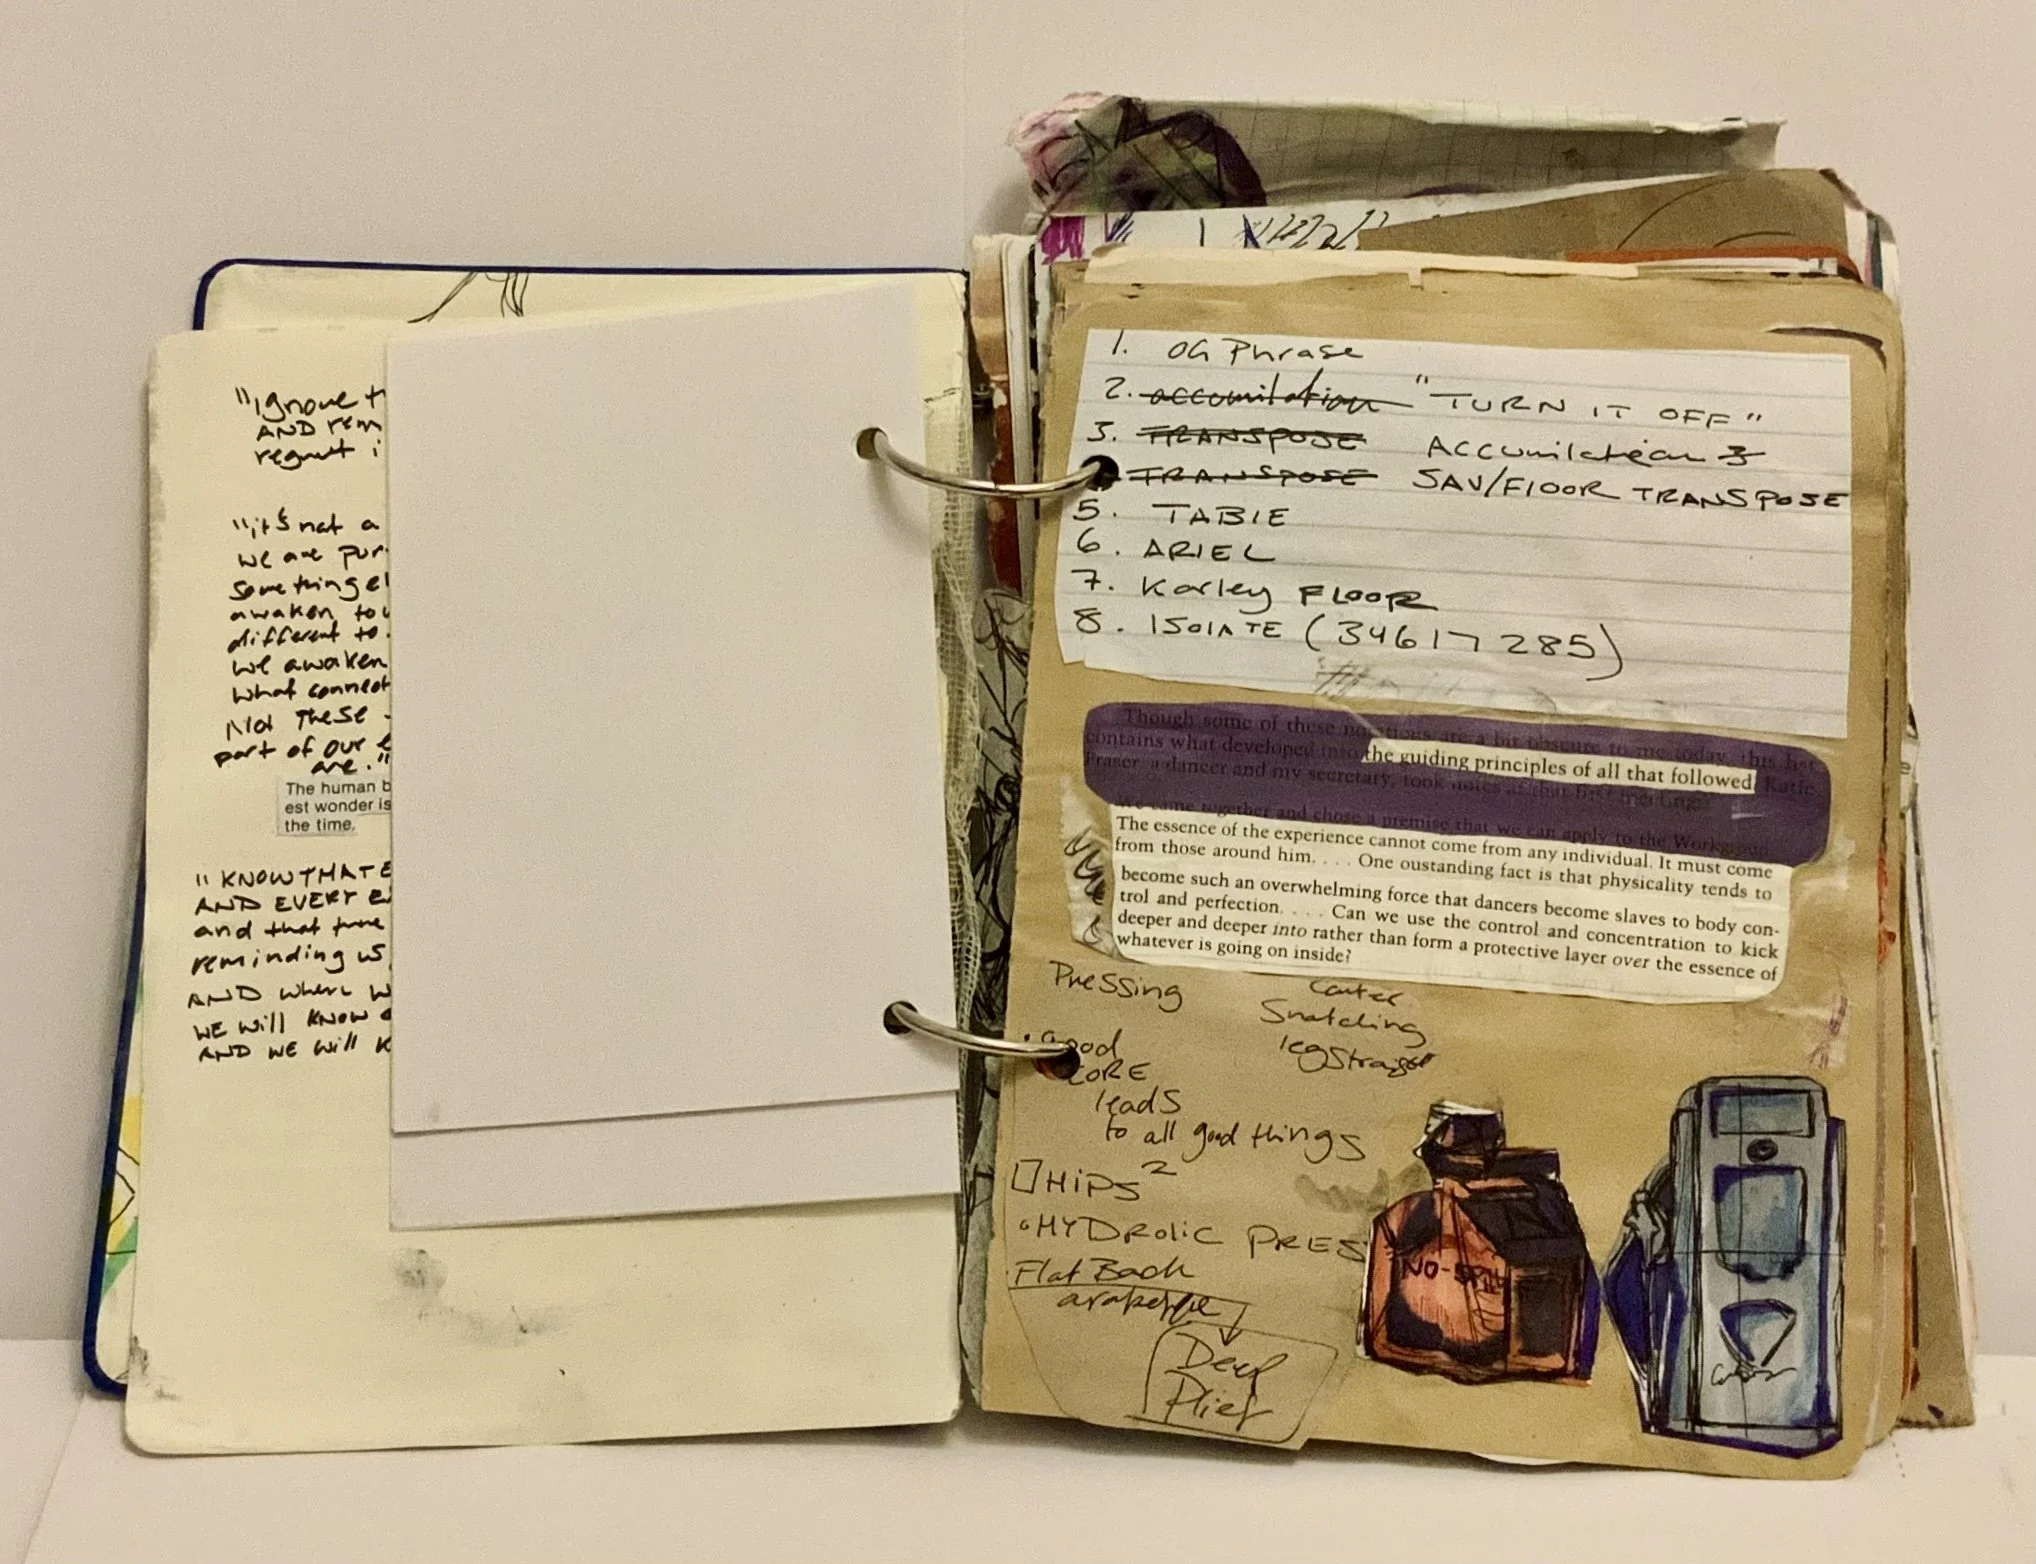 "Ignore t
AND rem
regret i
"it's not a
we are pur
something el
awaken to u
different to
we awaken
what connect
Not These
part of our e
are."
The human b
est wonder is
the time.
"KNOW THAT E
AND EVERY E
and that tune
reminding us
AND where w
WE will KNOW
AND WE will K
1. OG Phrase
2. accumilation "TURN IT OFF"
3. TRANSPOSE ACCumilation
TRANSPOSE SAV/FlOOR TRANSPOSE
5. TABlE
6. ARIEL
7. Karley FLOOR
8. ISOlATE (34617285)
Though some of these notations are a bit obscure to me today, this list
contains what developed into the guiding principles of all that followed. Katie
Fraser, a dancer and my secretary, took notes at that first meeting:
We came together and chose a premise that we can apply to the Workgroup.
The essence of the experience cannot come from any individual. It must come
from those around him. . . . One oustanding fact is that physicality tends to
become such an overwhelming force that dancers become slaves to body con-
trol and perfection. . . . Can we use the control and concentration to kick
deeper and deeper into rather than form a protective layer over the essence of
whatever is going on inside?
Pressing
Snatching
leg straight
Good
CORE
leads
to all good things
HiPS 2
HYDrolic PRES
Flat Back
Deep
Plier
NO-SPILL